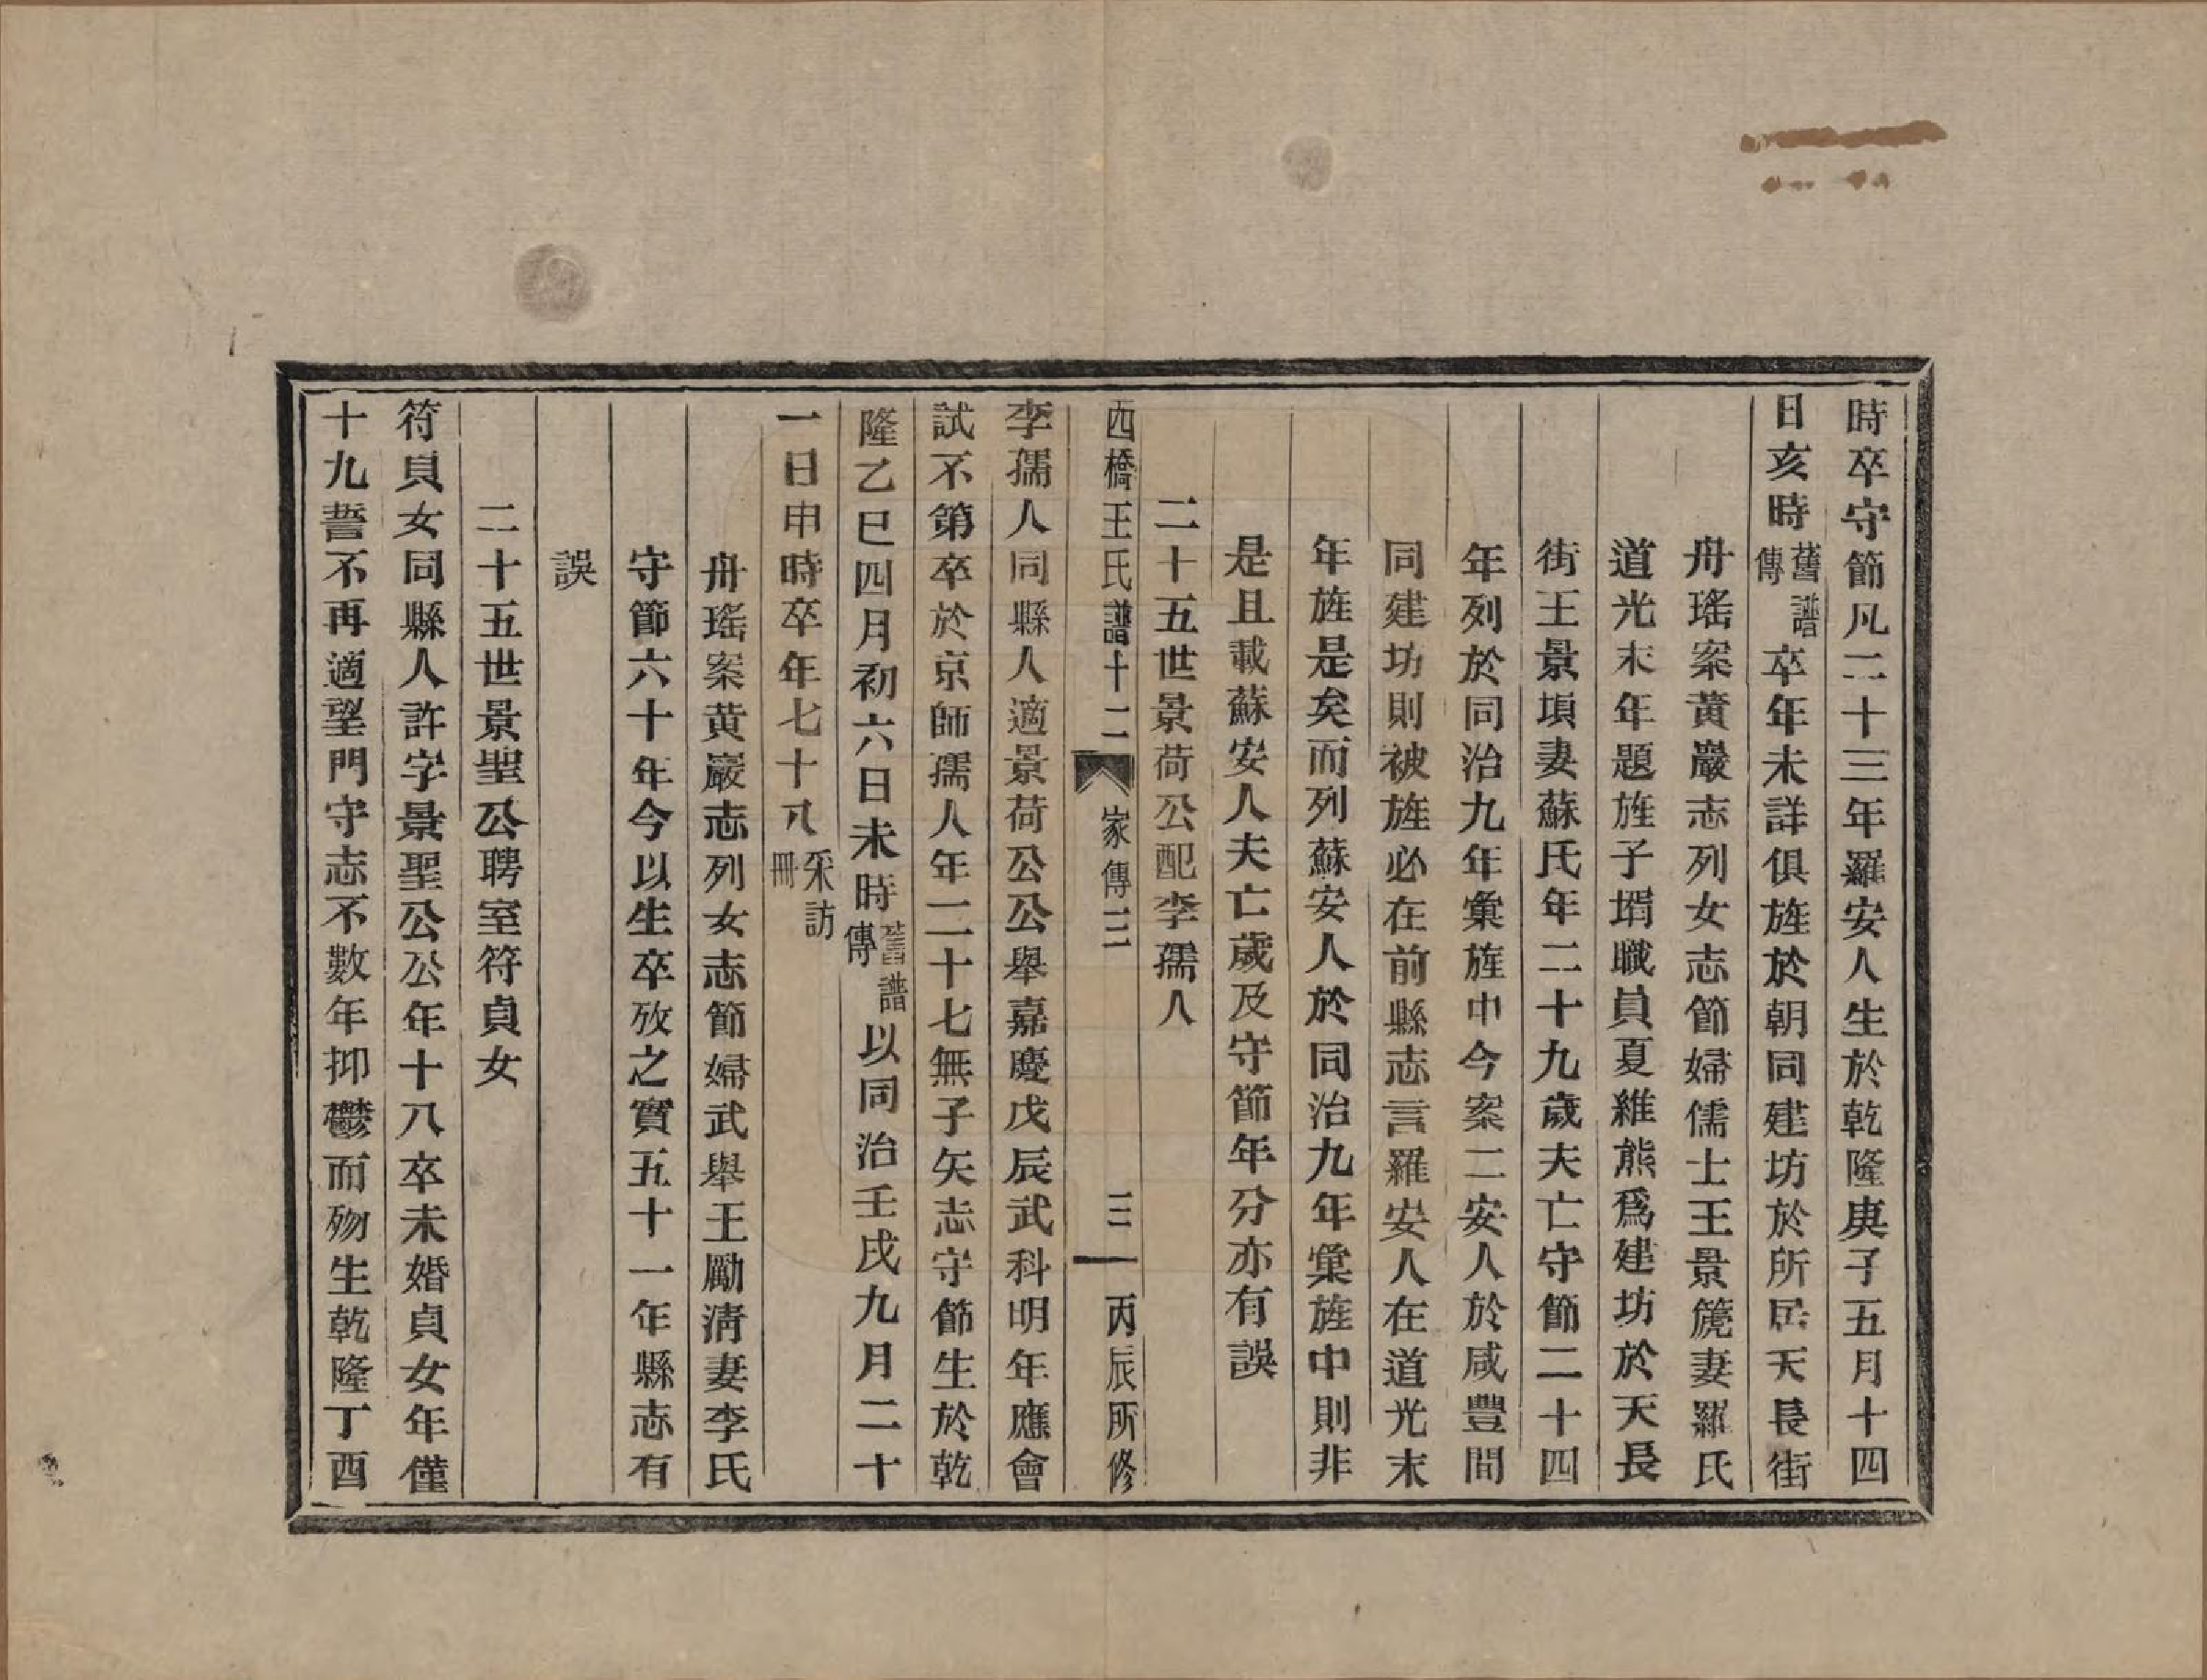 時卒守節凡二十三年羅安人生於乾隆庚子五月十四
日亥時舊譜傳卒年未詳俱旌於朝同建坊於所居天長街
舟瑤案黃巖志列女志節婦儒士王景篪妻羅氏
道光末年題旌子壻職員夏維熊爲建坊於天長
街王景塤妻蘇氏年二十九歲夫亡守節二十四
年列於同治九年彙旌中今案二安人於咸豐間
同建坊則被旌必在前縣志言羅安人在道光末
年旌是矣而列蘇安人於同治九年彙旌中則非
是且載蘇安人夫亡歲及守節年分亦有誤
二十五世景荷公配李孺人
西橋王氏譜十二 家傳三 三 丙辰所修
李孺人同縣人適景荷公公舉嘉慶戊辰武科明年應會
試不第卒於京師孺人年二十七無子矢志守節生於乾
隆乙巳四月初六日未時舊譜傳以同治壬戌九月二十
一日申時卒年七十八采訪冊
舟瑤案黃巖志列女志節婦武舉王勵清妻李氏
守節六十年今以生卒攷之實五十一年縣志有
誤
二十五世景聖公聘室符貞女
符貞女同縣人許字景聖公公年十八卒未婚貞女年僅
十九誓不再適望門守志不數年抑鬱而歾生乾隆丁酉